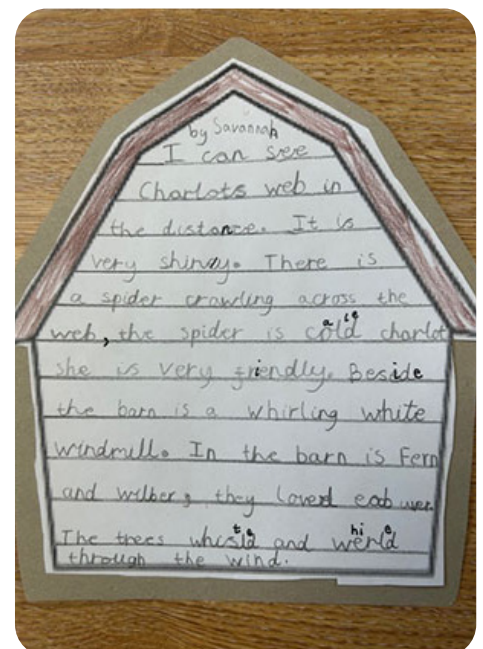 by Savannah
I can see
Charlots web in
the distance. It is
very shinny. There is
a spider crawling across the
web, the spider is cold charlot
she is very friendly. Beside
the barn is a whirling white
windmill. In the barn is Fern
and wilber, they loved
The trees and
through the wind.